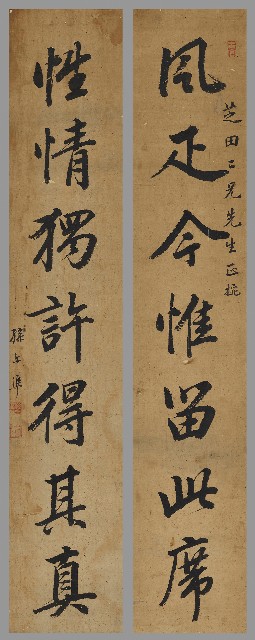 風疋今惟留此席
芝田二兄先生正
性情獨許得其真
孫